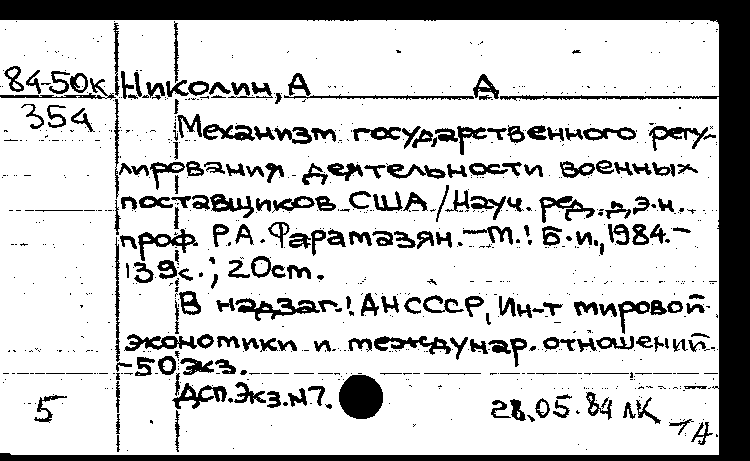 84-50к Николин, А А
354 Механизм государственного регу-
лирования деятельности военных
поставщиков США / Науч. ред. д.э.н.
проф. Р.А. Фарамазян. - М.: Б.и., 1984. -
139с.; 20см.
В надзаг.: АН СССР, Ин-т мировой
экономики и междунар. отношений.
-50экз.
5 ДСП. Экз. N7. 28.05.84 ЛК
-1А